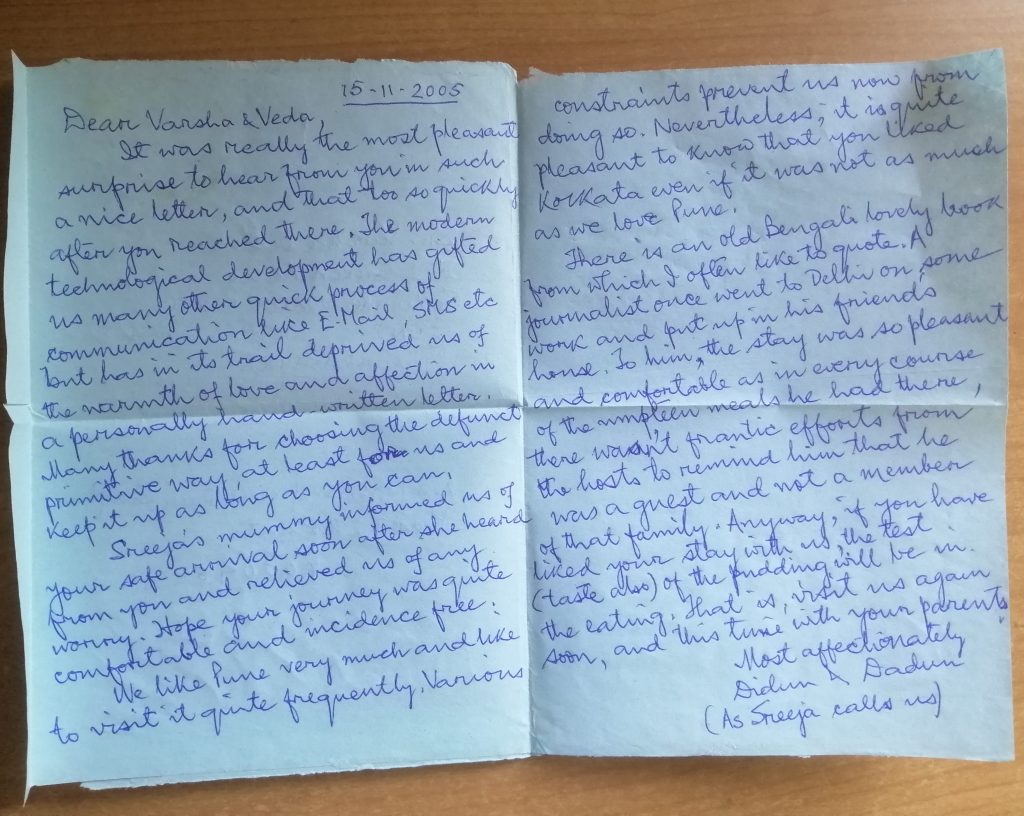 15-11-2005
Dear Varsha & Veda,
It was really the most pleasant
surprise to hear from you in such
a nice letter, and that too so quickly
after you reached there. The modern
technological development has gifted
us many other quick process of
communication like E-Mail, SMS etc
but has in its trail deprived us of
the warmth of love and affection in
a personally hand-written letter.
Many thanks for choosing the defunct
primitive way, at least for us and
keep it up as long as you can.
Sreeja's mummy informed us of
your safe arrival soon after she heard
from you and relieved us of any
worry. Hope your journey was quite
comfortable and incidence free.
We like Pune very much and like
to visit it quite frequently. Various
constraints prevent us now from
doing so. Nevertheless, it is quite
pleasant to know that you liked
Kolkata even if it was not as much
as we love Pune.
There is an old Bengali lovely book
from which I often like to quote. A
journalist once went to Delhi on some
work and put up in his friends
house. To him, the stay was so pleasant
and comfortable as in every course
of the umpteen meals he had there,
there wasn't frantic efforts from
the hosts to remind him that he
was a guest and not a member
of that family. Anyway, if you have
liked your stay with us, the test
(taste also) of the pudding will be in
the eating. That is, visit us again
soon, and this time with your parents.
Most affectionately
Didun & Dadun
(As Sreeja calls us)